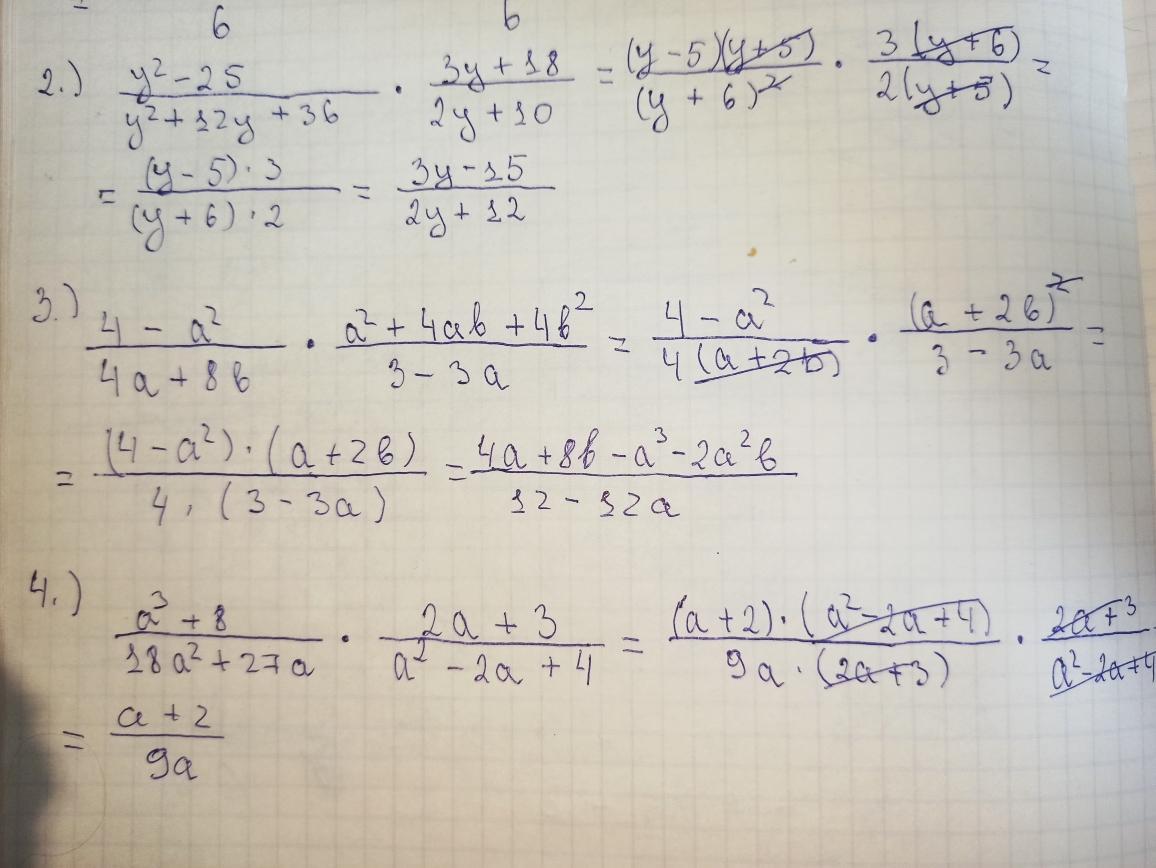 6 6
2.) y²-25/y²+12y+36 · 3y+18/2y+10 = (y-5)(y+5)/(y+6)² · 3(y+6)/2(y+5) =
= (y-5)·3/(y+6)·2 = 3y-15/2y+12
3.) 4-a²/4a+8b · a²+4ab+4b²/3-3a = 4-a²/4(a+2b) · (a+2b)²/3-3a =
= (4-a²)·(a+2b)/4·(3-3a) = 4a+8b-a³-2a²b/12-12a
4.) a³+8/18a²+27a · 2a+3/a²-2a+4 = (a+2)·(a²-2a+4)/9a·(2a+3) · 2a+3/a²-2a+4
= a+2/9a